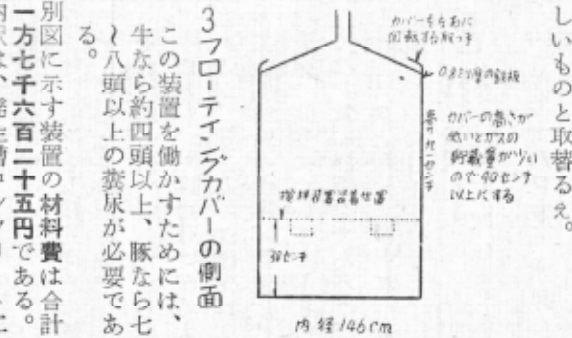 しいものと取替るえ。
カバーを左右に
回転する取っ手
0.8ミリ厚の鉄板
カバーの高さが
低いとガスの
貯蔵量が少い
ので90センチ
以上にする
攪拌装置品着位置
30センチ
内径146cm
3フローティングカバーの側面
この装置を働かすためには、
牛なら約四頭以上、豚なら七
〜八頭以上の糞尿が必要であ
る。
別図に示す装置の材料費は合計
一万七千六百二十五円である。